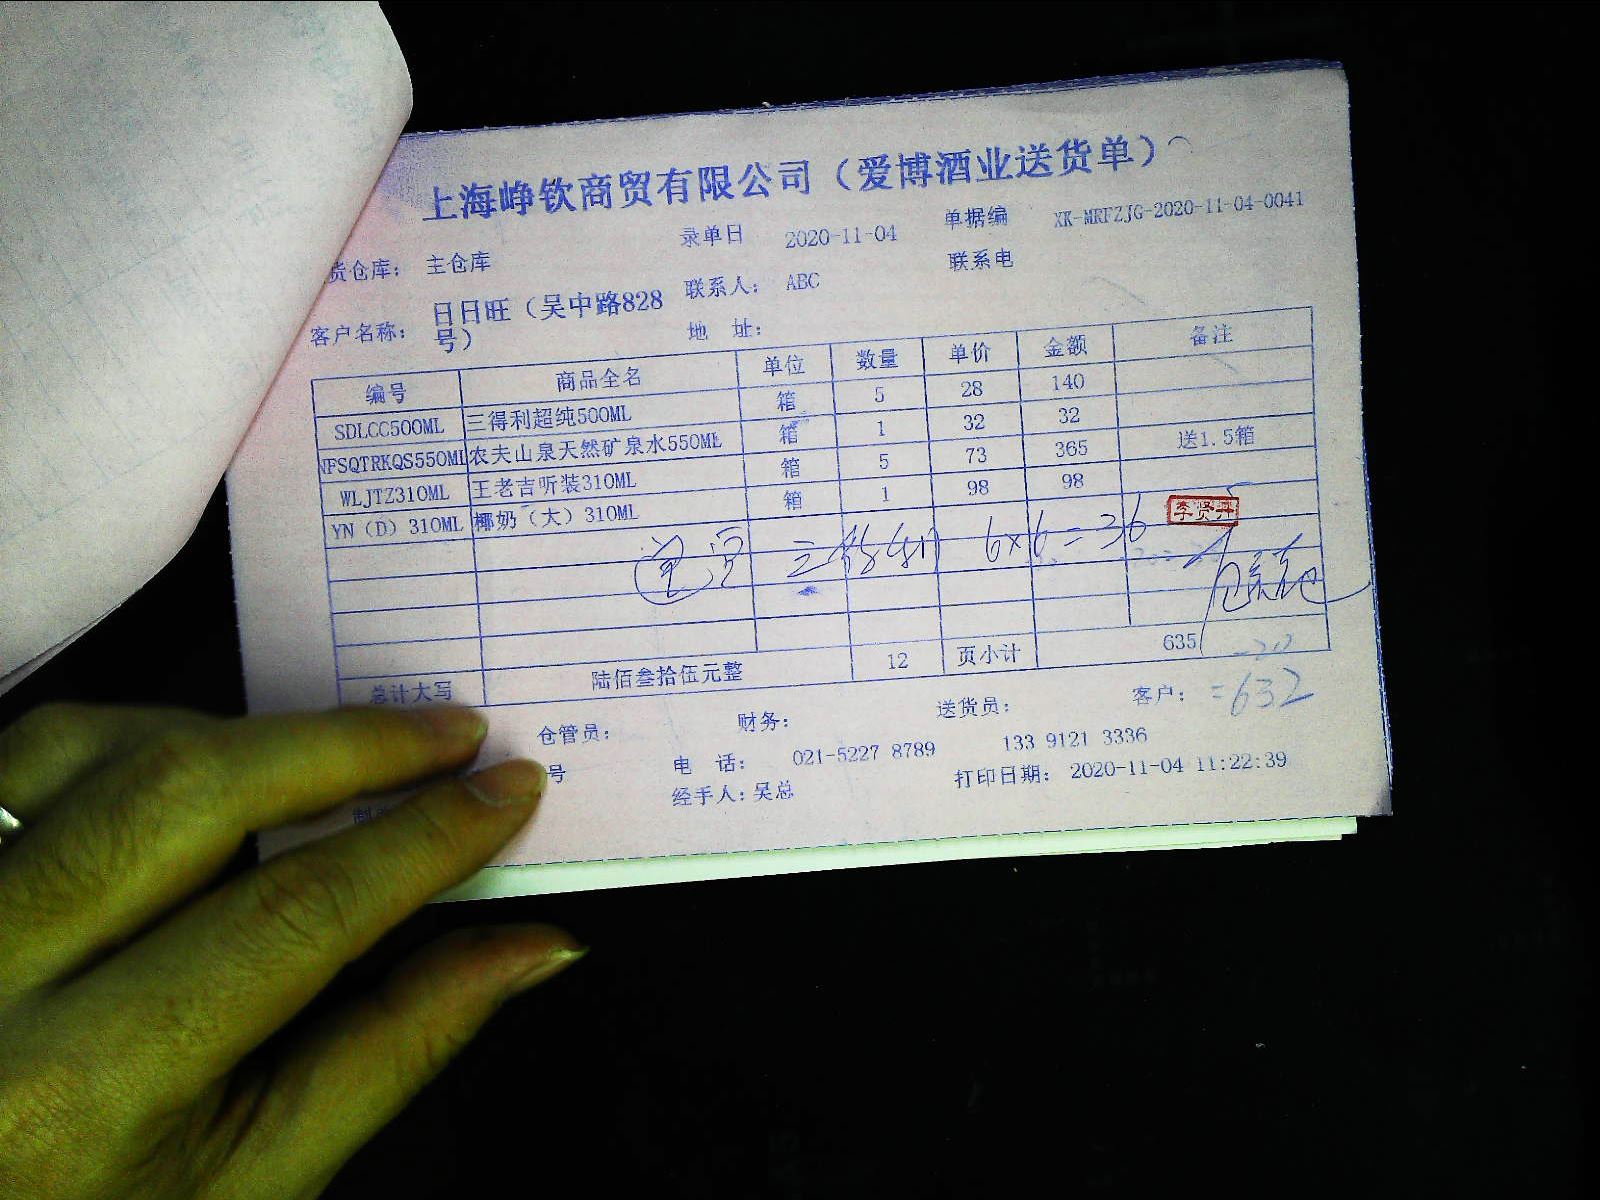 上海峥钦商贸有限公司（爱博酒业送货单）
录单日 2020-11-04 单据编 XK-MRFZJG-2020-11-04-0041
货仓库： 主仓库 联系电
客户名称： 日日旺（吴中路828号） 联系人： ABC
地 址：
编号 商品全名 单位 数量 单价 金额 备注
SDLCC500ML 三得利超纯500ML 箱 5 28 140
NFSQTRKQS550ML 农夫山泉天然矿泉水550ML 箱 1 32 32
WLJTZ310ML 王老吉听装310ML 箱 5 73 365 送1.5箱
YN（D）310ML 椰奶（大）310ML 箱 1 98 98
6×6=36 李贤丹
总计大写 陆佰叁拾伍元整 12 页小计 635
=632
仓管员： 财务： 送货员： 客户：
号 电 话： 021-5227 8789 133 9121 3336
经手人：吴总 打印日期： 2020-11-04 11:22:39